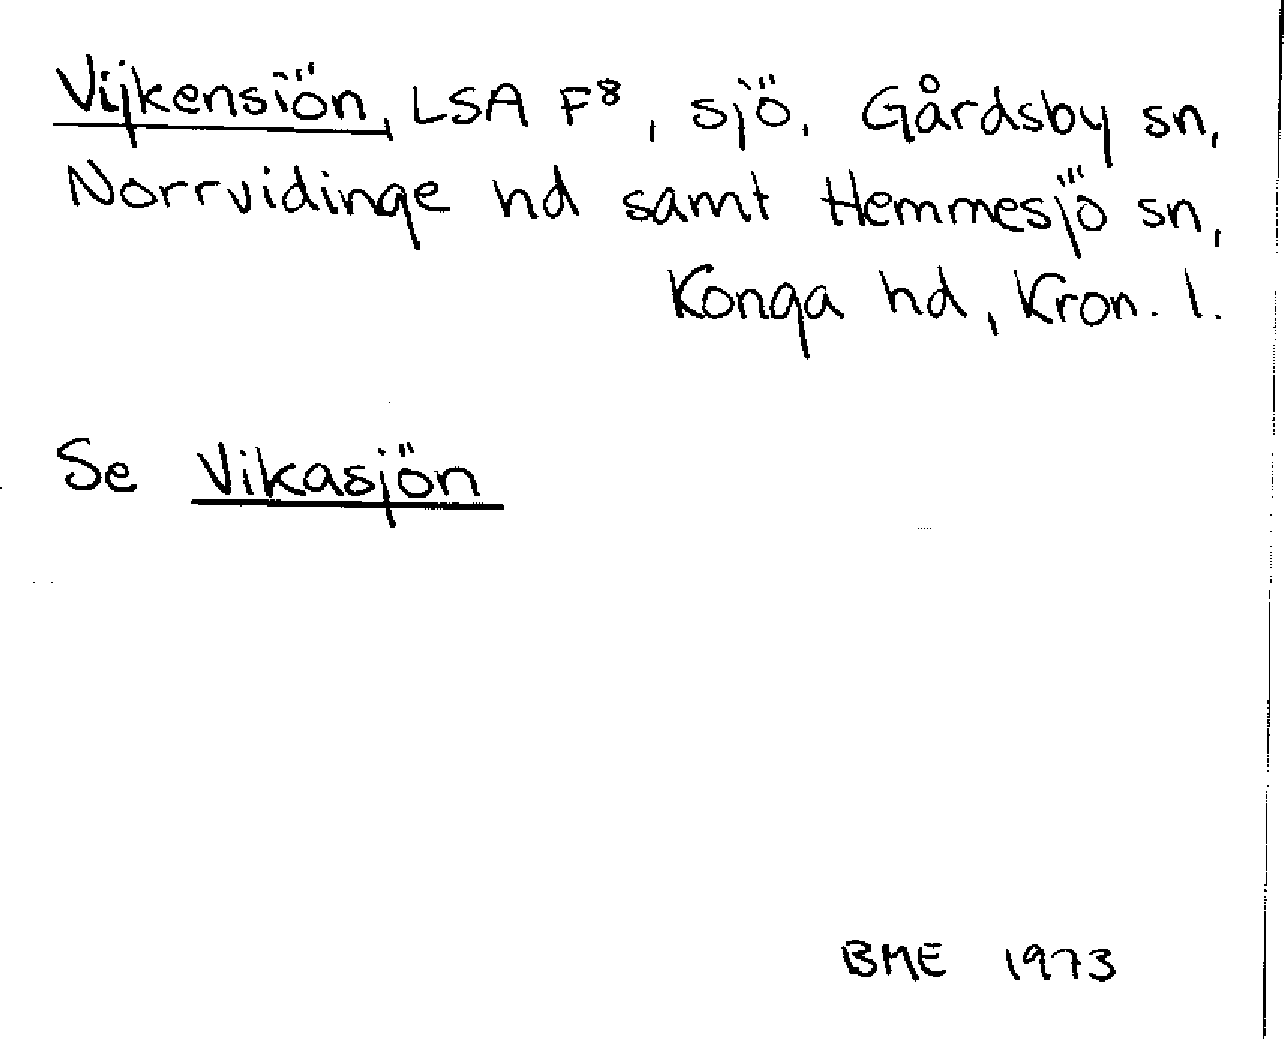 Vijkensiön, LSA F⁸, sjö. Gårdsby sn,
Norrvidinge hd samt Hemmesjö sn,
Konga hd, Kron. l.
Se Vikasjön
BME 1973